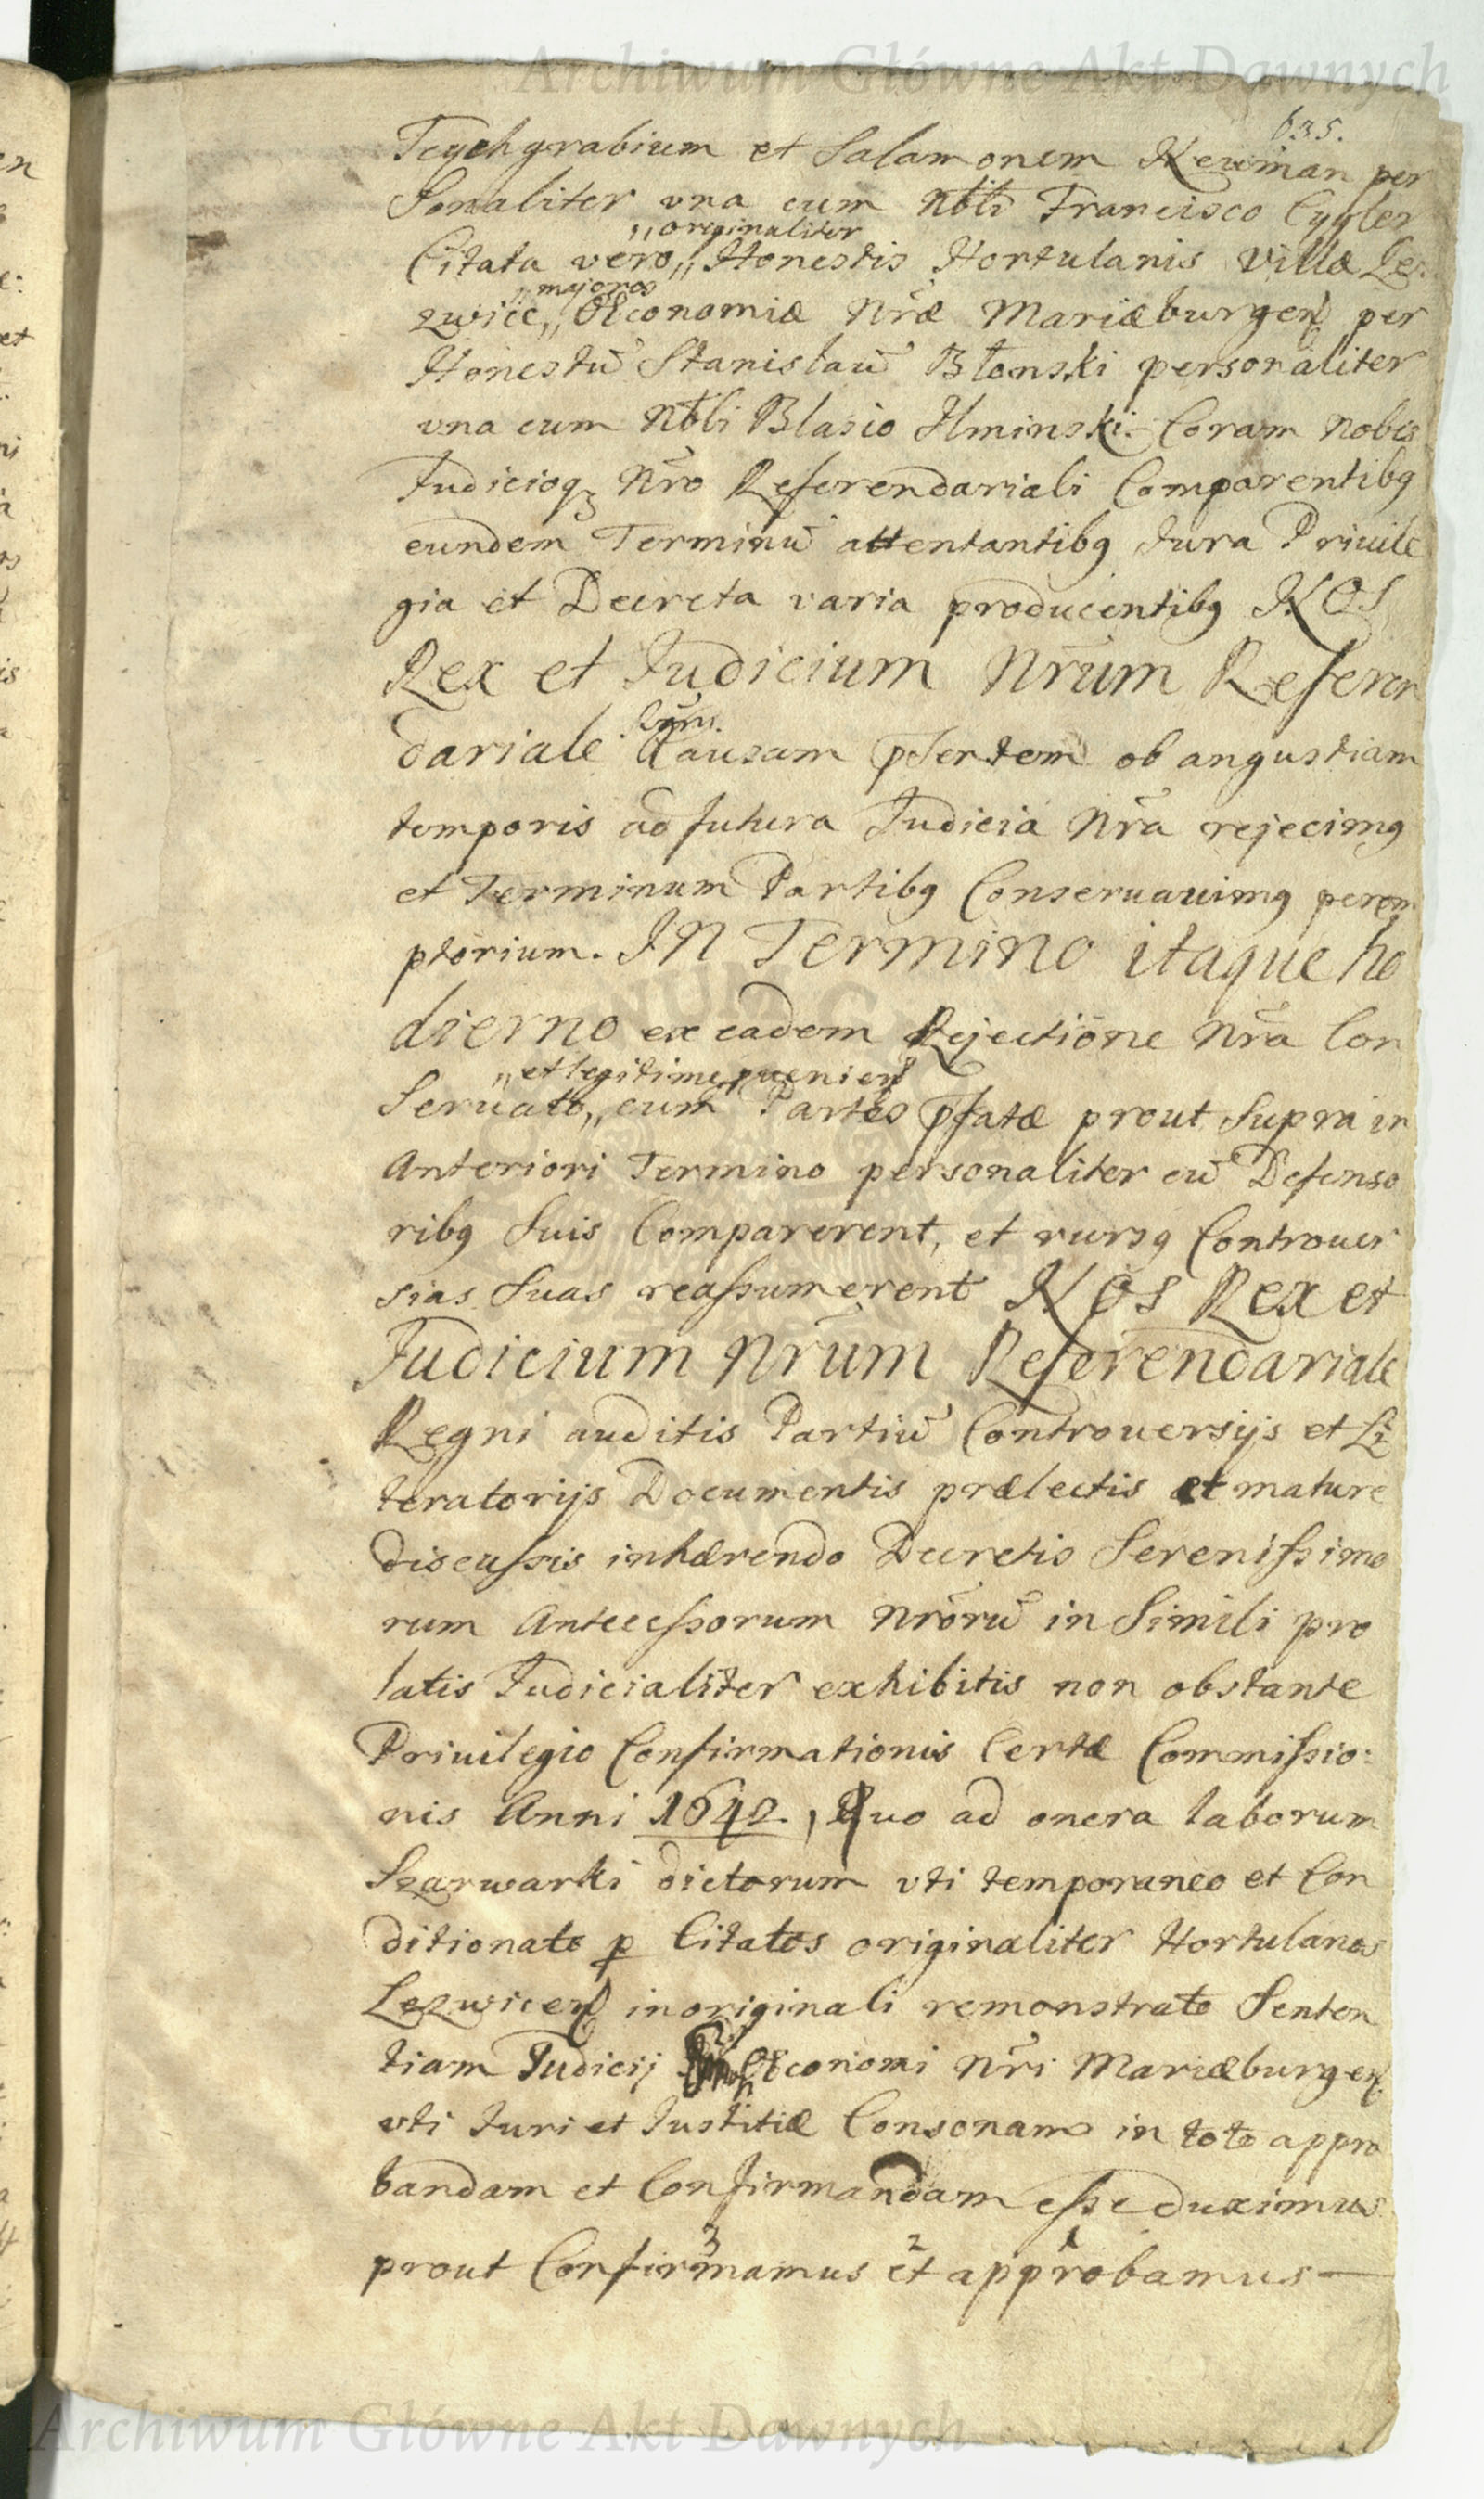 Archiwum Główne Akt Dawnych
635.
Teychgrabium et Salamonem Newman per
Sonaliter vna cum Nbli Francisco Cygler
„originaliter
Citata vero„ Honestis Hortulanis Villæ Les
„majoros
zwice„ Œconomiæ Nræ Mariæburgen per
Honestū Stanisław Błonski personaliter
vna cum Nbli Blasio Ilminski Coram nobis
Judicioq Nro Referendariali Comparentibq
eundem Terminū attentantibq Jura Priuile
gia et Decreta varia producentibq NOS
Rex et Judicium Nrūm Referen
dariale
Causam pserltem ob angustiam
temporis ad futura Judicia Nra rejecimq
et Terminum Partibq Conseruauimq perem
ptorium. IN Termino itaque ho
dierno ex eadem Rejectione Nra Con
„et legitime pueniens
Seruato„ cum Partes pfatæ prout Supra in
Anteriori Termino personaliter cū Defenso
ribq Suis Comparerent, et rursq Controuer
sias Suas reassumerent NOS Rex et
Judicium Nrūm Referendariale
Regni auditis Partiū Controuersijs et Li
teratorijs Documentis prælectis et mature
discussis inhærendo Decretis Serenissimo
rum Antecessorum Nrorū in Simili pro
latis Judicialiter exhibitis non obstante
Priuilegio Confirmationis Certæ Commissio:
nis Anni 1642., Quo ad onera laborum
Szarwarki dictorum vti temporaneo et Con
ditionato p Citatos originaliter Hortulanos
Lezwicen in originali remonstrato Senten
tiam Judicij Œconomi Nri Mariæburgen
vti Juri et Justitiæ Consonam in toto appro
bandam et Confirmandam esse duximus
3 2 1
prout Confirmamus et approbamus —
Archiwum Główne Akt Dawnych